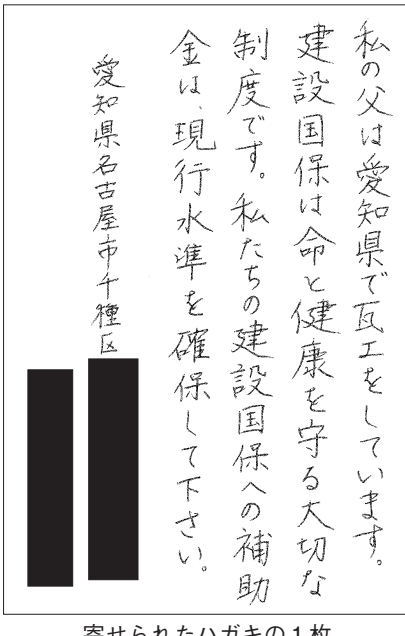 私の父は愛知県で瓦工をしています。
建設国保は命と健康を守る大切な
制度です。私たちの建設国保への補助
金は、現行水準を確保して下さい。
愛知県名古屋市千種区
寄せられたハガキの1枚